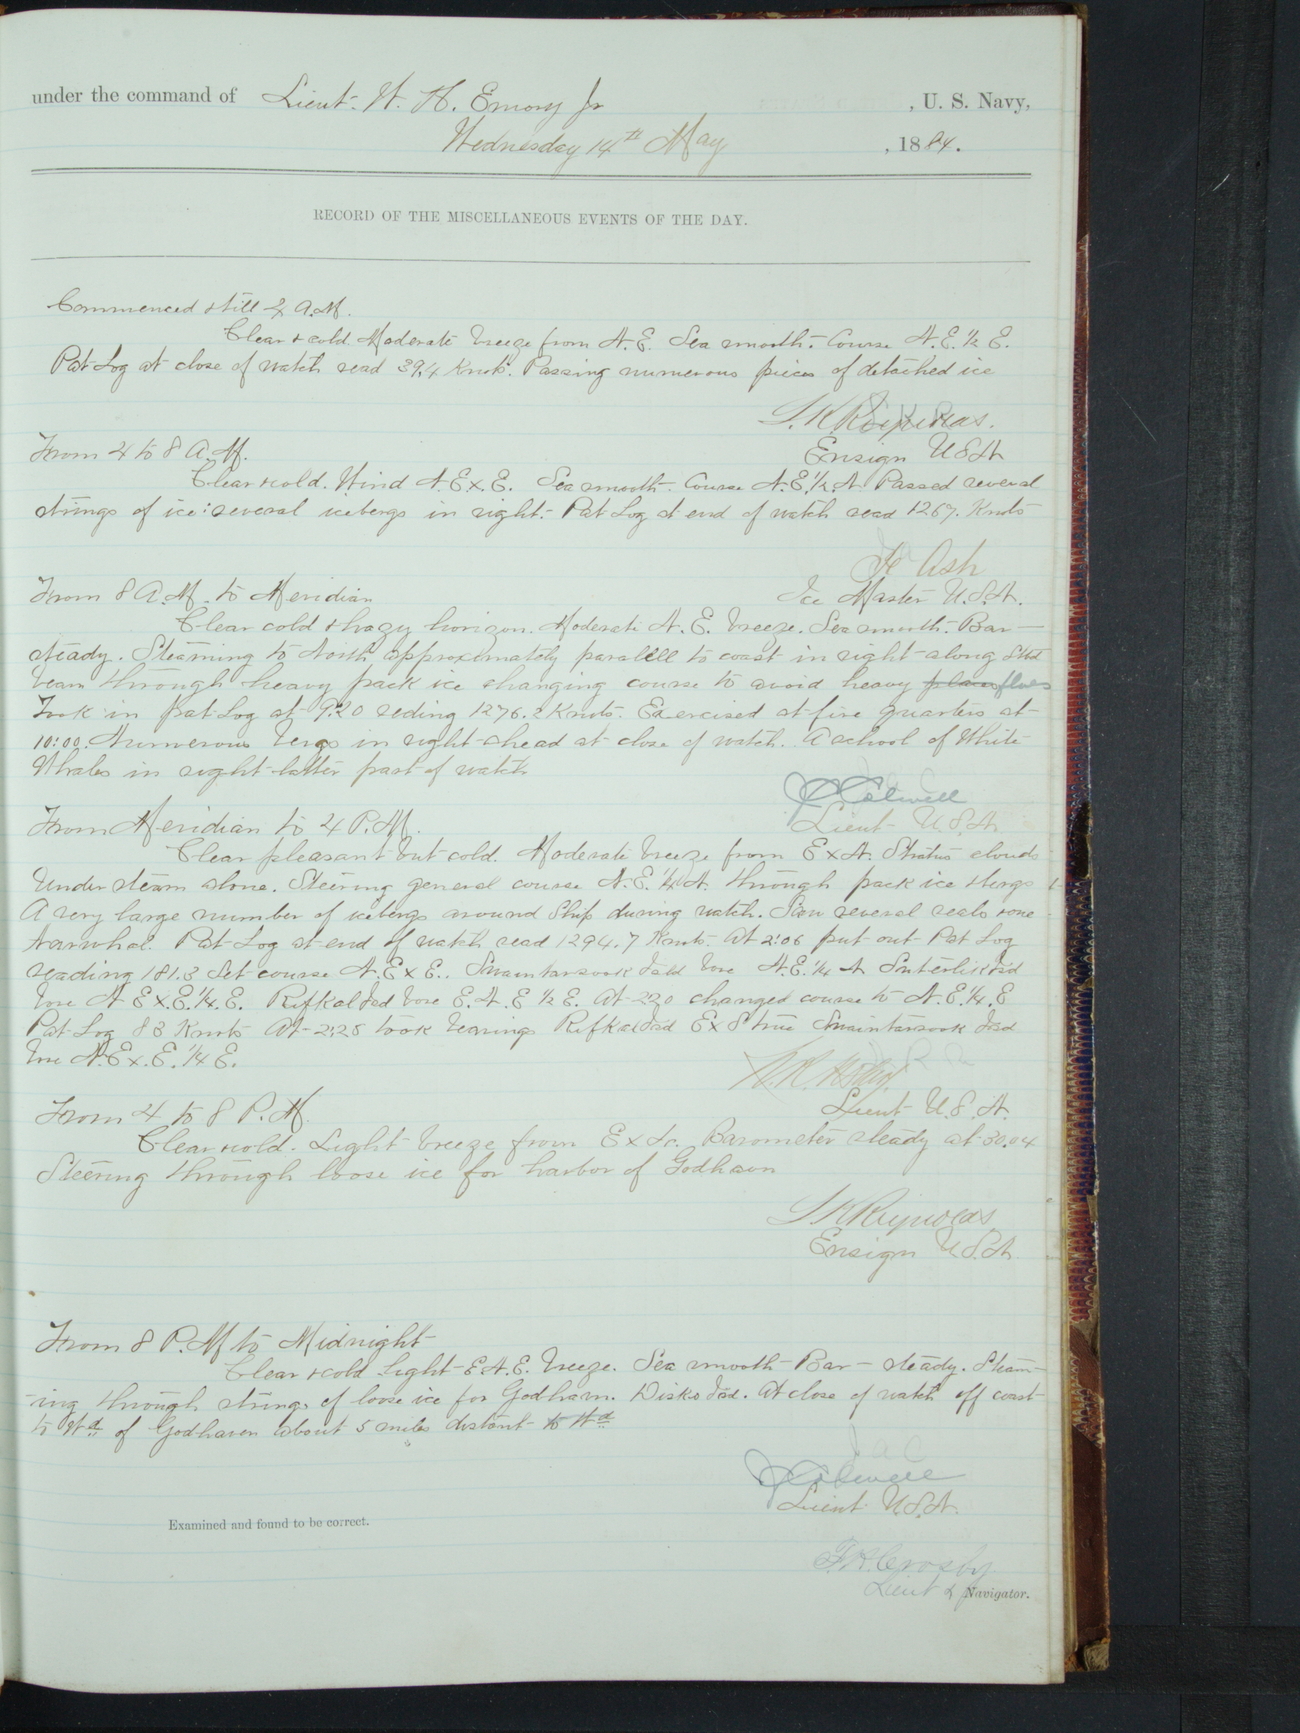 under the command of Lieut. W. H. Emory Jr , U. S. Navy,
Wednesday 14th May , 1884.
RECORD OF THE MISCELLANEOUS EVENTS OF THE DAY.
Commenced & till 4 A.M.
Clear & cold. Moderate breeze from N.E. Sea smooth. Course N.E. ½ E.
Pat Log at close of watch read 39.4 Knots. Passing numerous pieces of detached ice
S. K. Reynolds.
Ensign U.S.N
From 4 to 8 A.M.
Clear & cold. Wind N.E x E. Sea smooth. Course N.E. ½ N. Passed several
strings of ice: several icebergs in sight. Pat Log at end of watch read 1267. Knots
Ash
Ice Master U.S.N.
From 8 A.M. to Meridian
Clear cold & hazy horizon. Moderate N.E. breeze. Sea smooth. Bar
steady. Steaming to North approximately parallell to coast in sight along Stbd
beam through heavy pack ice changing course to avoid heavy floes
Took in pat Log at 9:20 reding 1276.2 Knots. Exercised at fire quarters at
10:00. Numerous bergs in sight ahead at close of watch. A school of White
Whales in sight latter part of watch
J C Colwell
Lieut U.S.N
From Meridian to 4 P.M.
Clear pleasant but cold. Moderate breeze from E x N. Stratus clouds
Under steam alone. Steering general course N.E. ¼ N. through pack ice & bergs
A very large number of icebergs around Ship during watch. Saw several seals & one
Narwhal. Pat Log at end of watch read 1294.7 Knots. At 2:06 put out Pat Log
reading 181.3 Set course N.E x E. Isld bore N.E. ¼ N
bore N E x E. ¼ E. Rifkal Isd bore E.N.E ½ E. At 2:20 changed course to N.E. ¼ E
Pat Log 83 Knots At 2:25 took bearings Rifkal Isd E x S true Isd
bore N.E x E. ¼ E.
Lieut U.S.N.
From 4 to 8 P.M.
Clear & cold. Light breeze from E x N. Barometer steady at 30.04
Steering through loose ice for harbor of Godhavn
S K Reynolds
Ensign U.S.N
From 8 P.M to Midnight
Clear & cold Light E.N.E. breeze. Sea smooth Bar steady. Steam-
-ing through strings of loose ice for Godhavn. Disko Isd. At close of watch off coast
to Wd of Godhaven about 5 miles distant to Wd
J C Colwell
Lieut U.S.N.
Examined and found to be correct.
F. H. Crosby
Lieut & Navigator.